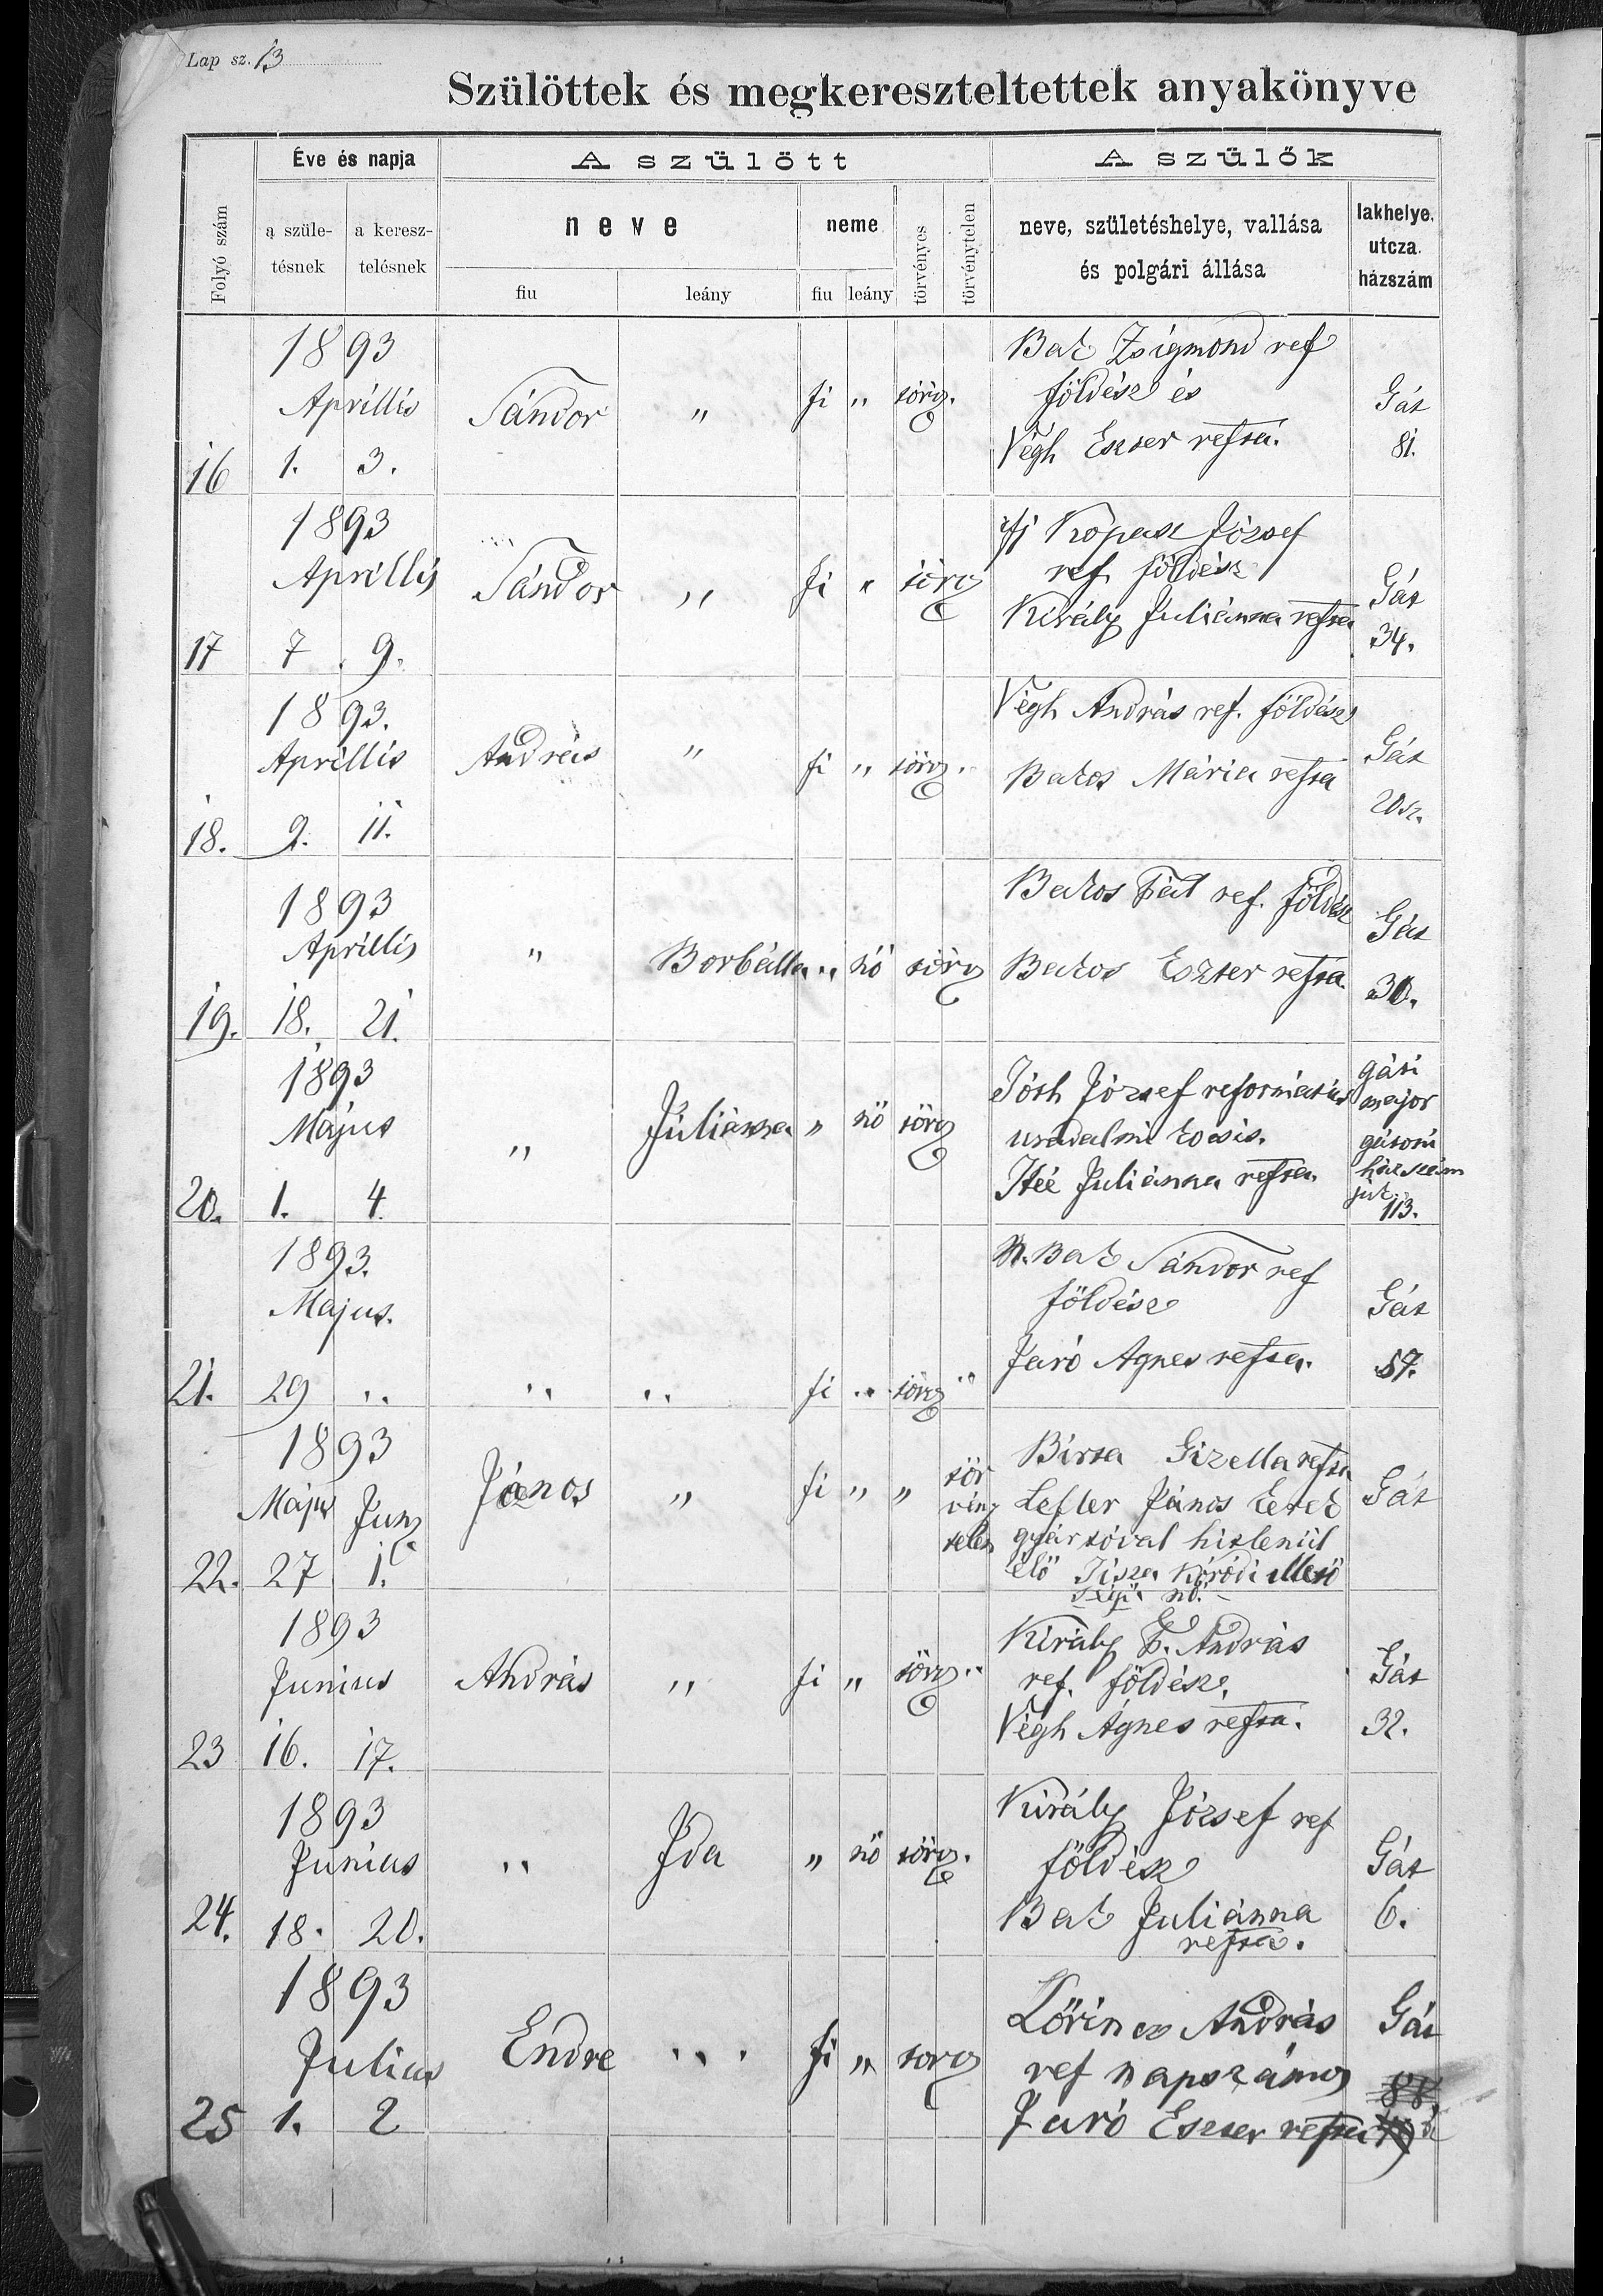 Lap sz. 13
Szülöttek és megkereszteltettek anyakönyve
Folyó szám
Éve és napja
a születésnek
a keresztelésnek
A szülött
neve
fiu
leány
neme
fiu
leány
törvényes
törvénytelen
A szülők
neve, születéshelye, vallása
és polgári állása
lakhelye.
utcza.
házszám
16
1893
Aprillis
1. 3.
Sándor
"
fi " törv.
Bak Zsigmond ref
földész és
Végh Eszter refta.
Gát
81.
17
1893
Aprillis
7. 9.
Sándor
"
fi " törv
ifj Kopasz József
ref. földész
Király Juliánna refta
Gát
34.
18.
1893.
Aprillis
9. 11.
András
"
fi " törv.
Végh András ref. földész
Bakos Mária refta
Gát
20sz.
19.
1893
Aprillis
18. 21.
"
Borbálla
" nő törv
Bakos Pál ref. földész
Bakos Eszter refta.
Gát
30.
20.
1893
Május
1. 4
"
Juliánna
" nő törv
Tóth József református
uradalmi kocsis.
Juliánna refta.
gáti
major
házszám
113.
21.
1893.
Majus.
29 "
" "
fi " törv "
Bak Sándor ref
földész
Jaró Agnes refta.
Gát
57.
22.
1893
Május Juny
27 1.
János
"
fi " "
tör
vény
telen
Birta Gizella refta
Lefler János
gyártóval hitlenül
élő Tisza
nő.
Gát
23
1893
Junius
16. 17.
András
"
fi " törv. "
Király F. András
ref. földész.
Végh Ágnes refta.
Gát
32.
24.
1893
Junius
18. 20.
"
Ida
" nő törv.
Király József ref
földész
Bak Juliánna
refta.
Gát
6.
25
1893
Julius
1. 2
Endre
" "
fi " törv
Lőrincz András
ref napszámos
Jaró Eszter refta
Gát
88.